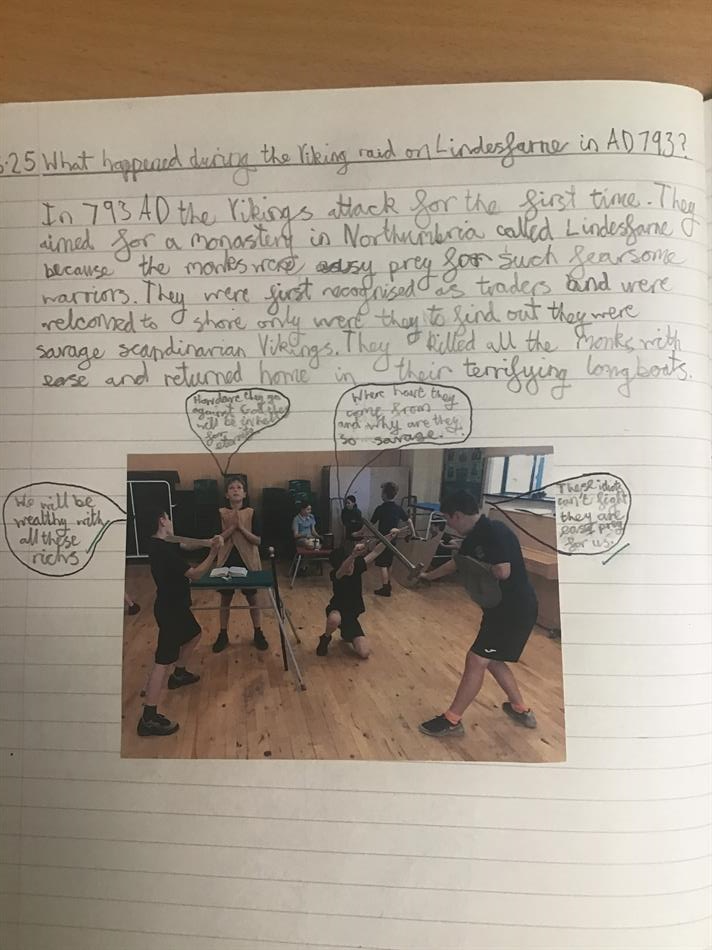 .25 What happened during the Viking raid on Lindesfarne in AD 793?
In 793 AD the Vikings attack for the first time. They
aimed for a monastery in Northumbria called Lindesfarne
because the monks were easy prey for such fearsome
warriors. They were first recognised as traders and were
welcomed to shore only were they to find out they were
savage scandinarian Vikings. They killed all the monks with
ease and returned home in their terrifying longboats.
How dare they go
against God they
will be in hell
for
eternity
Where have they
come from
and why are they
so savage.
We will be
wealthy with
all these
richs
These idiots
can't fight
they are
easy prey
for us.